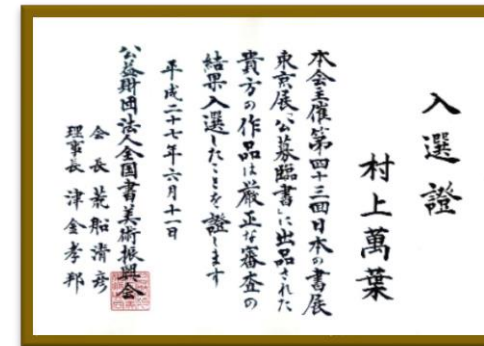 入選證
村上萬葉
本会主催第四十三回日本の書展
東京展「公募臨書」に出品された
貴方の作品は厳正な審査の
結果入選したことを證します
平成二十七年六月十一日
公益財団法人全国書美術振興会
会長 荒船清彦
理事長 津金孝邦